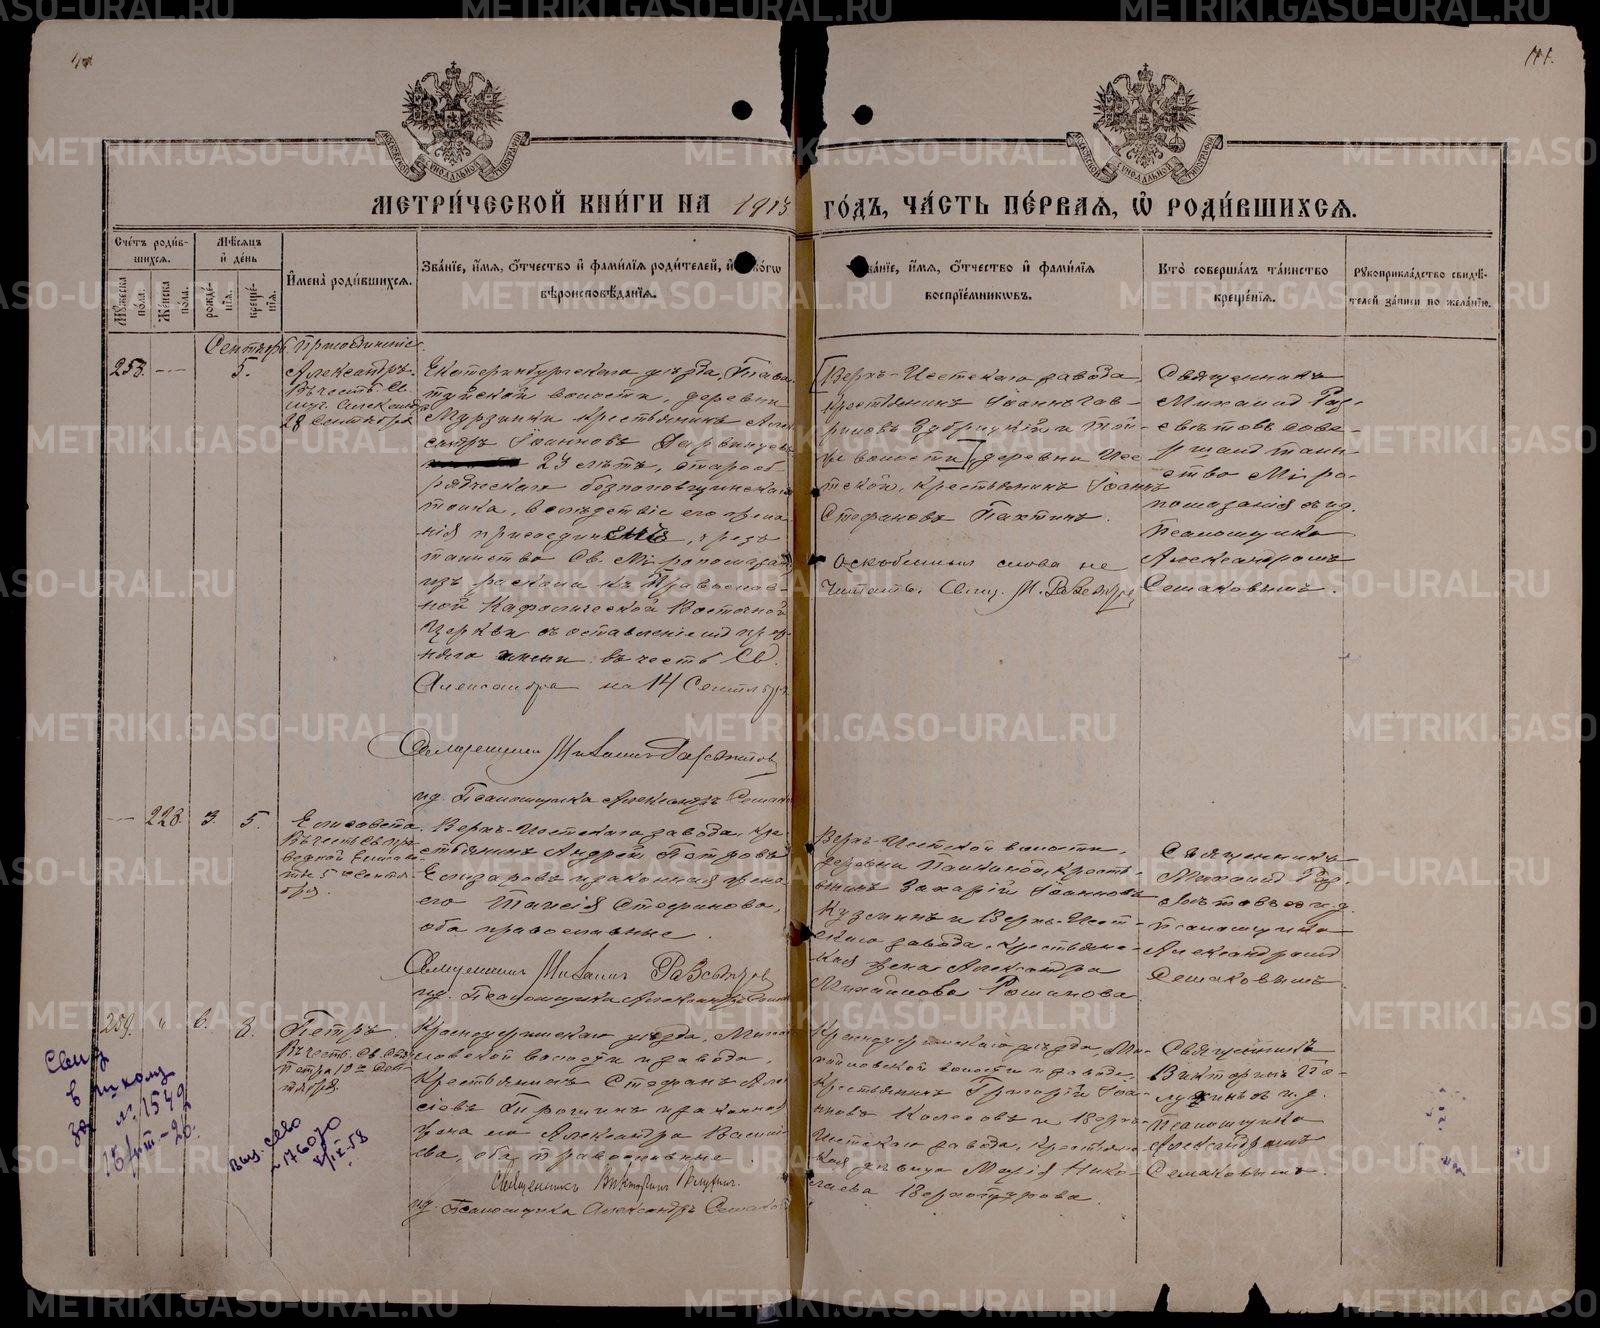 МЕТРИ́ЧЕСКОЙ КНИ́ГИ НА 1913 ГО́ДЪ, ЧА́СТЬ ПЕ́РВАЯ, Ѡ РОДИ́ВШИХСЯ.
Сче́тъ роди́вшихся.
Му́жеска по́ла.
Же́нска по́ла.
Мѣ́сяцъ и де́нь
рожде́нія.
креще́нія.
Имена̀ роди́вшихся.
Зва́ніе, и́мя, о́тчество и фами́лія роди́телей, и како́гѡ
вѣроисповѣ́данія.
Зва́ніе, и́мя, о́тчество и фами́лія
воспріе́мниковъ.
Кто̀ соверша́лъ та́инство
креще́нія.
Рукоприкла́дство свидѣ́-
телей за́писи по жела́нію.
Сентябрь. Присоединеніе.
258. — 5.
Александръ.
Въ честь Св.
28 Сентября
Екатеринбургскаго уѣзда, Тава-
туйской волости, деревни
Мурзинки крестьянинъ Алек-
сандръ Іоанновъ
23 лѣтъ, старооб-
рядческаго безпоповщинскаго
толка, вслѣдствіе его жела-
нія присоединенъ, чрезъ
таинство Св. Мѵропомазан.
изъ раскола къ Православ-
ной Каѳолической Восточной
Церкви съ оставленіемъ преж-
няго имени въ честь Св.
Александра на 14 Сентября
Священникъ Михаилъ Разсвѣтовъ
ид. Псаломщика Александръ Семаков
Верхъ-Исетскаго завода,
крестьянинъ Іоаннъ Гав-
риловъ и той-
же волости, деревни Исе-
тской, крестьянинъ Іоаннъ
Стефановъ Пахтинъ.
Оскобленныя слова не
читать. Свящ. М. Разсвѣтовъ
Священникъ
Михаилъ Раз-
свѣтовъ сове-
ршилъ таин-
ство Мѵро-
помазанія съ ид.
Псаломщика
Александромъ
Семаковымъ.
— 228. 3. 5.
Елисавета.
Въ честь Св. пра-
ведной Елисаве-
ты 5го Сентя-
бря.
Верхъ-Исетскаго завода, кре-
стьянинъ Андрей Петровъ
Елизаровъ и законная жена
его Таисія Стефанова,
оба православные.
Священникъ Михаилъ Разсвѣтовъ
ид. Псаломщика Александръ Семак
Верхъ-Исетской волости,
деревни Палкиной, кресть-
янинъ Захарій Іоанновъ
Кузминъ и Верхъ-Исет-
скаго завода, крестьянс-
кая жена Александра
Михайлова Рошанова.
Священникъ
Михаилъ Раз-
свѣтовъ съ и.д.
псаломщика
Александромъ
Семаковымъ.
259. " 6. 8.
Петръ
Въ честь Св.
Петра 10го Сен-
тября
Красноуфимскаго уѣзда, Михай-
ловской волости и завода,
крестьянинъ Стефанъ Алек-
сіевъ и законная
жена его Александра Василь-
ева, оба православные.
Священникъ Викторинъ
ид. Псаломщика Александръ Семаков
Красноуфимскаго уѣзда, Ми-
хайловской волости и завода,
крестьянинъ Григорій Іоа-
нновъ Колесовъ и Верхъ-
Исетскаго завода, крестьянс-
кая дѣвица Марія Нико-
лаева
Священникъ
Викторинъ
и.д.
Псаломщика
Александромъ
Семаковымъ.
за № 1549
METRIKI.GASO-URAL.RU